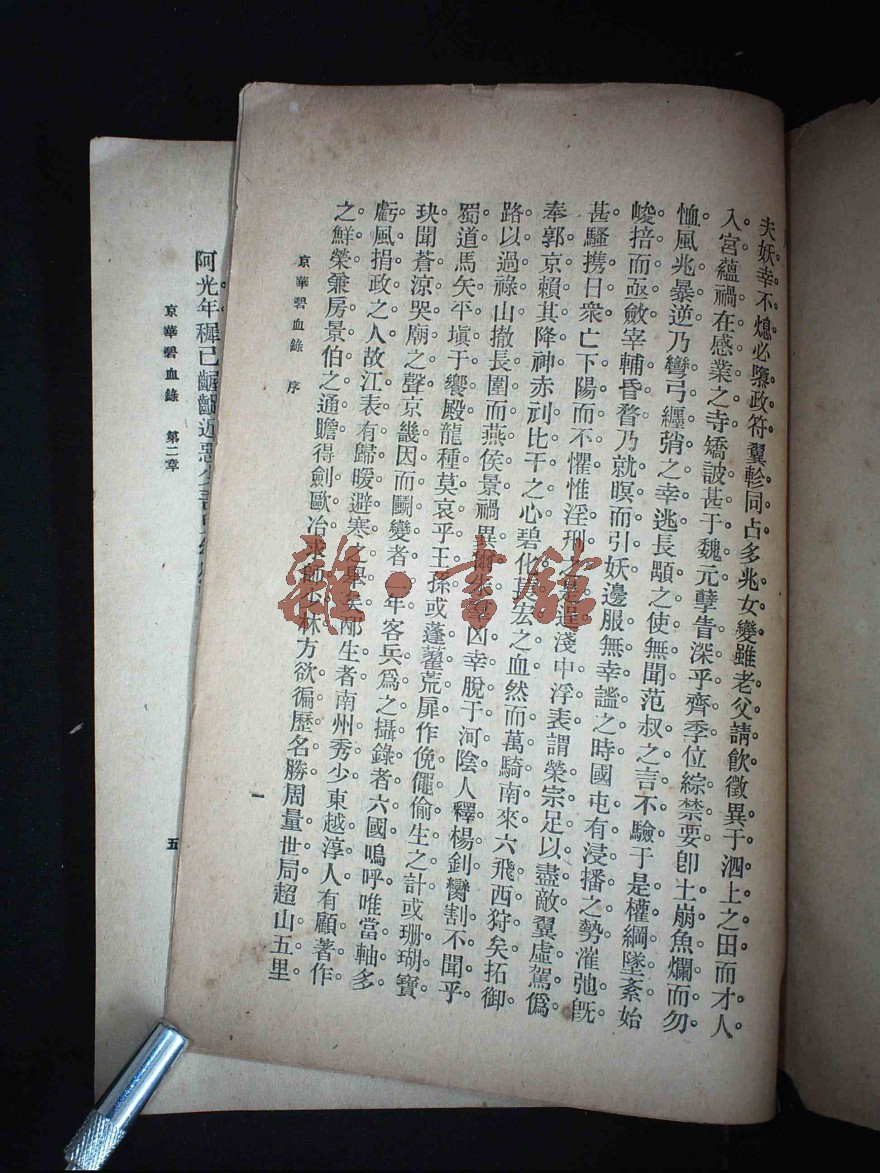 夫妖幸不熄。必隳政符。翼軫同占。多兆女變。雖老父請飲。徵異于泗上之田。而才人。
入宮。蘊禍在感業之寺。矯詖甚于魏元。孽眚深乎齊季。位綜禁要。卽土崩魚爛而勿
恤。風兆暴逆。乃彎弓纏弰之幸逃。長顒之使無聞。范叔之言不驗。于是權綱墜紊。始
峻掊而亟斂。宰輔昏瞀。乃就暝而引妖。邊服無幸謐之時。國屯有浸播之勢。漼弛旣
甚。騷攜日衆。亡下陽而不懼。惟淫刑之是逞。淺中浮表。謂榮宗足以盡敵。翼虛駕僞。
奉郭京賴其降神。赤刳比干之心。碧化萇宏之血。然而萬騎南來。六飛西狩矣。拓御
路以過祿山。撤長圍而燕侯景。禍異爾朱。羣凶幸脫于河陰。人釋楊釗。臠割不聞乎。
蜀道。馬矢平塡于饗殿。龍種莫哀乎王孫。或蓬藋荒扉。作俛僶偷生之計。或珊瑚寶
玦。聞蒼涼哭廟之聲。京畿因而鬭變者一年。客兵爲之攝錄者六國。嗚呼。唯當軸多
虧風捐政之人。故江表有歸暖避寒之車矣。邴生者。南州秀少。東越淳人。有顧著作
之鮮榮。兼房景伯之通贍。得劍歐冶。求師少林。方欲徧歷名勝。周量世局。超山五里
京華碧血錄　序
一
阿光年穉已齷齪近惡少
京華碧血錄　第二章
五
雜·書館